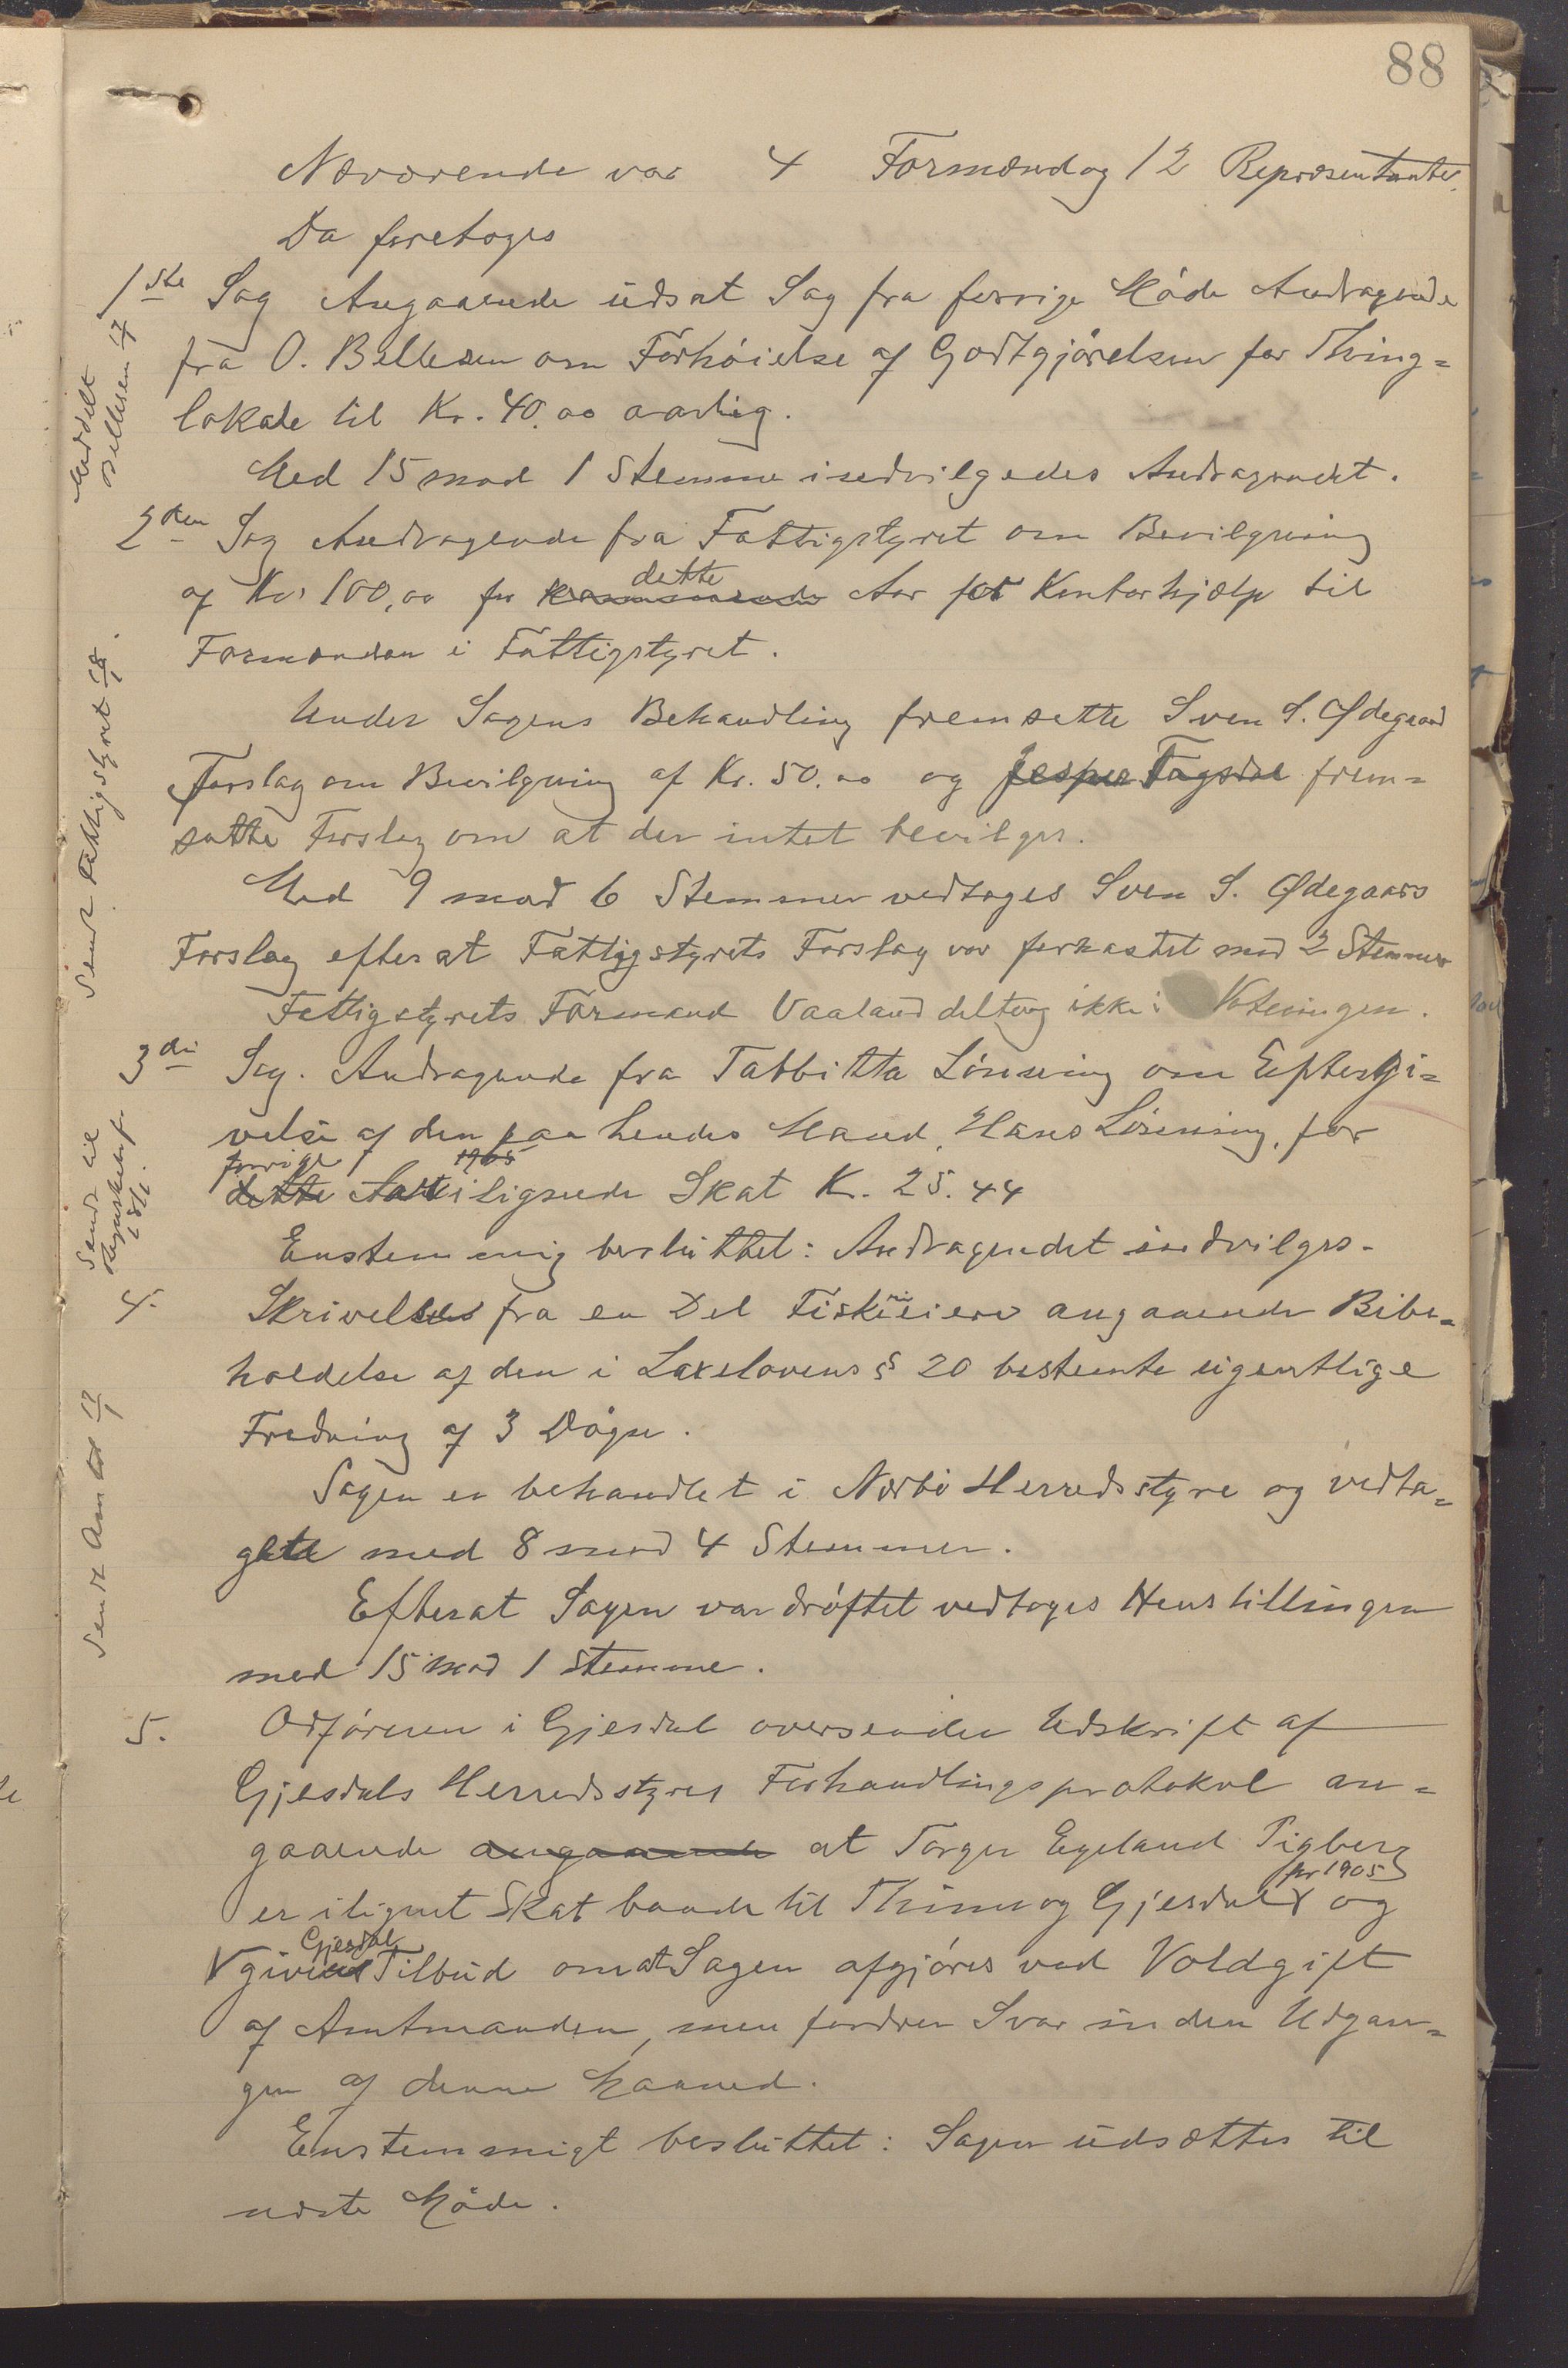 88
Nærværende var 4 Formænd og 12 Repræsentanter.
Da foretoges
1ste Sag Angaaende udsat Sag fra forrige Møde Andragende
fra O. Bellesen om Forhøielse af Godtgjørelsen for Thing=
lokale til Kr. 40.00 aarlig.
Med 15 mod 1 Stemme indvilgedes Andragendet.
Meddelt
Bellesen
2den Sag Andragende fra Fattigstyret om Bevilgning
af Kr. 100,00 for kommende dette Aar for Kontorhjælp til
Formanden i Fattigstyret.
Under Sagens Behandling fremsatte Sven S. Ødegaard
Forslag om Bevilgning af Kr. 50.00 og Jesper Fagsdal frem=
satte Forslag om at der intet bevilges.
Med 9 mod 6 Stemmer vedtoges Sven S. Ødegaars
Forslag efter at Fattigstyrets Forslag var forkastet mod 2 Stemmer
Fattigstyrets Formand Vaaland deltog ikke i Voteringen.
Sendt Fattigstyret 18/1.
3die Sag. Andragende fra Tabbitta Lønning om Eftergi=
velse af den paa hendes Mand, Hans Lønning, for
forrige dette Aar 1905 ilignede Skat Kr. 25.44
Enstemmig besluttet: Andragendet indvilges.
Sendt til
4. Skrivelse fra en Del Fiskeieiere angaaende Bibe=
holdelse af den i Laxelovens § 20 bestemte ugentlige
Fredning af 3 Døgn.
Sagen er behandlet i Nærbø Herredsstyre og vedta=
get med 8 mod 4 Stemmer.
Efterat Sagen var drøftet vedtoges Henstillingen
med 15 mod 1 Stemme.
Sendt Amtet 17/1
5. Ordføreren i Gjesdal oversender Udskrift af
Gjesdals Herredsstyres Forhandlingsprotokol an=
gaaende angaaende at Torger Egeland Tigberg
er ilignet Skat baade til Thime og Gjesdal pr 1905 og
giver Gjesdal Tilbud om at Sagen afgjøres ved Voldgift
af Amtmanden, men fordrer Svar inden Udgan=
gen af denne Maaned.
Enstemmigt besluttet: Sagen udsættes til
næste Møde.